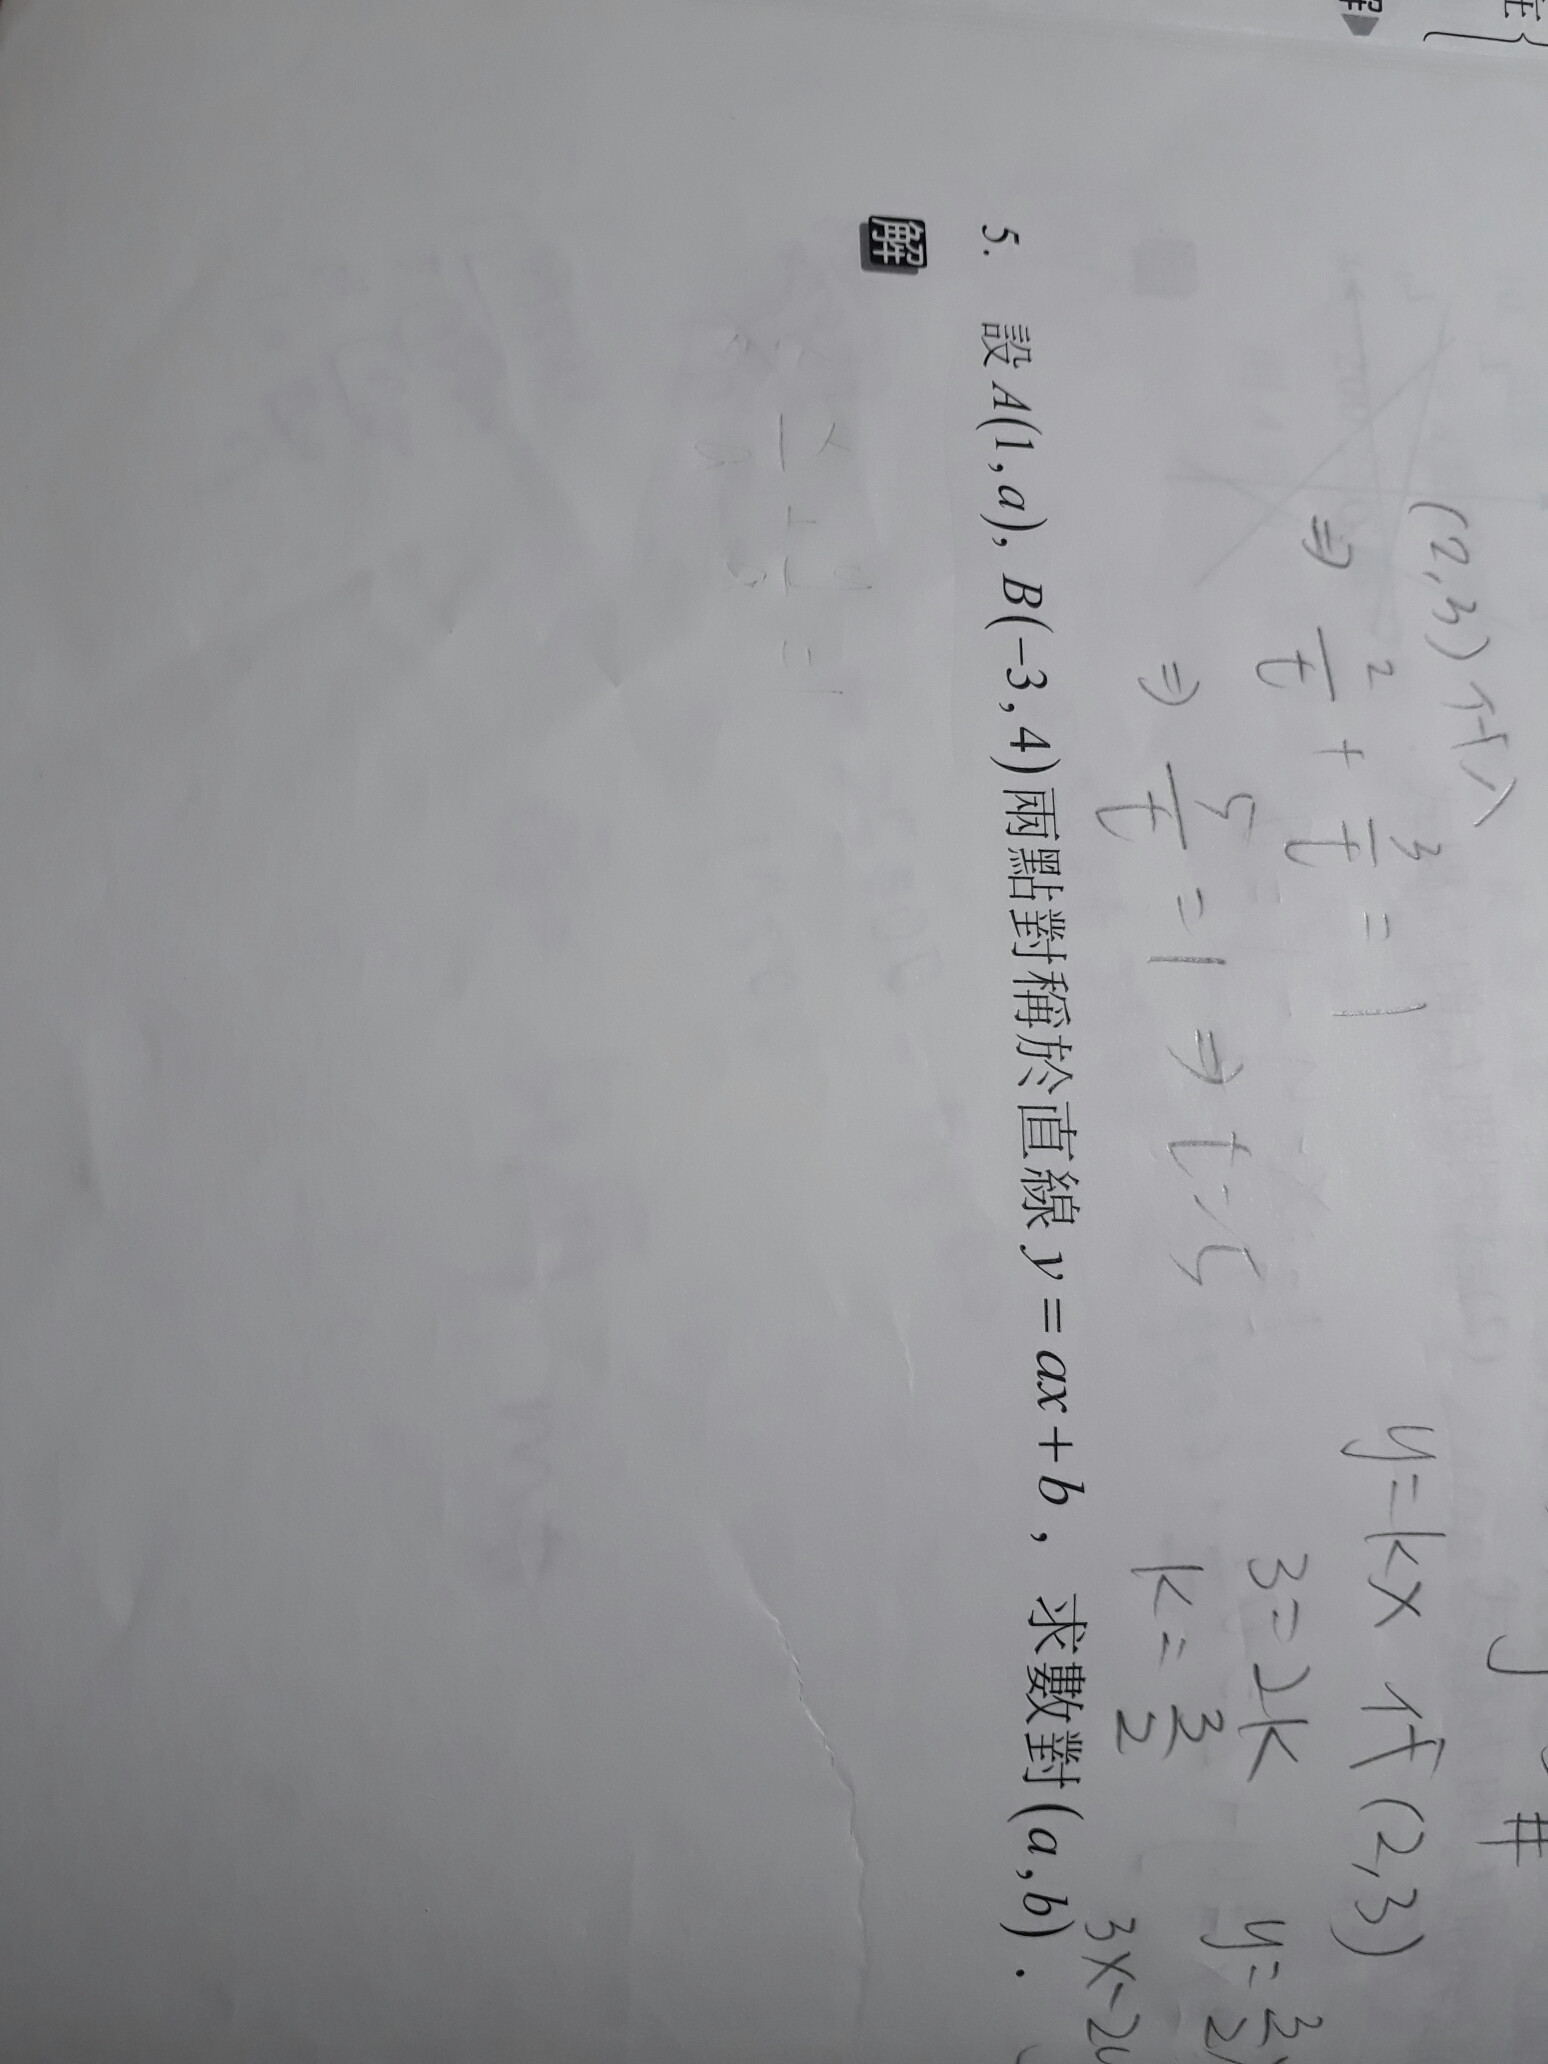 (2,3)代入
⇒ 2/t + 3/t = 1
⇒ 5/t = 1 ⇒ t=5
y=kx 代(2,3)
3=2k
k=3/2
5. 設 A(1,a), B(−3,4)兩點對稱於直線 y=ax+b, 求數對(a,b).
解